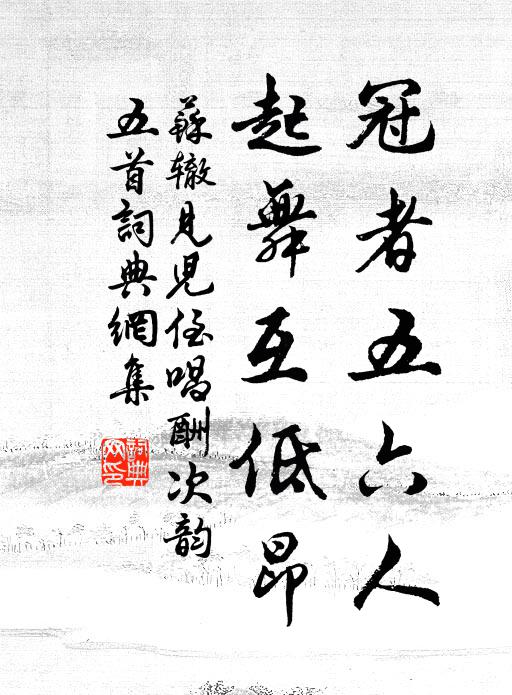 冠者五六人
起舞互低昂
蘇辙見児侄唱酬次韵
五首詞典網集
詞典
网印